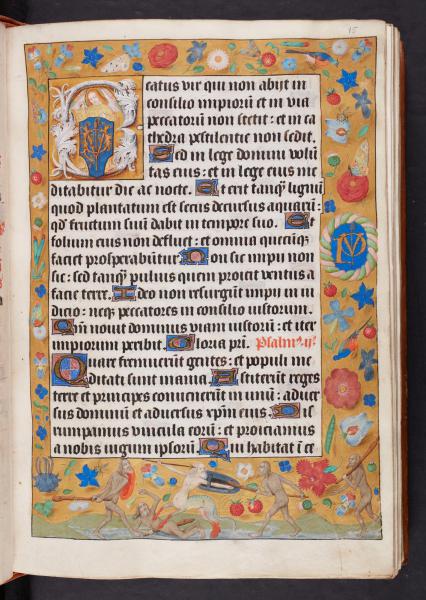 15
Beatus vir qui non abijt in
consilio impiorū et in via
peccatorū non stetit : et in ca
thedra pestilentie non sedit.
Sed in lege domini volū
tas eius : et in lege eius me
ditabitur die ac nocte. Et erit tanqȝ lignū
quod plantatum est secus decursus aquarū :
qd fructum suū dabit in tempore suo. Et
folium eius non defluet : et omnia quecūqȝ
faciet prosperabūtur. Non sic impij non
sic : sed tanqȝ puluis quem proicit ventus a
facie terre. Ideo non resurgūt impij in iu
dicio : neqȝ peccatores in consilio iustorum.
Qm̄ nouit dominus viam iustorū : et iter
impiorum peribit. Gloria pri. Psalmꝰ. ij.
Quare fremuerūt gentes : et populi me
ditati sunt inania. Astiterūt reges
terre et principes conuenerūt in unū : aduer
sus dominū et aduersus xpm̄ eius. Dis
rumpamus vincula eorū : et proiciamus
a nobis iugum ipsorū. Qui habitat ī ce